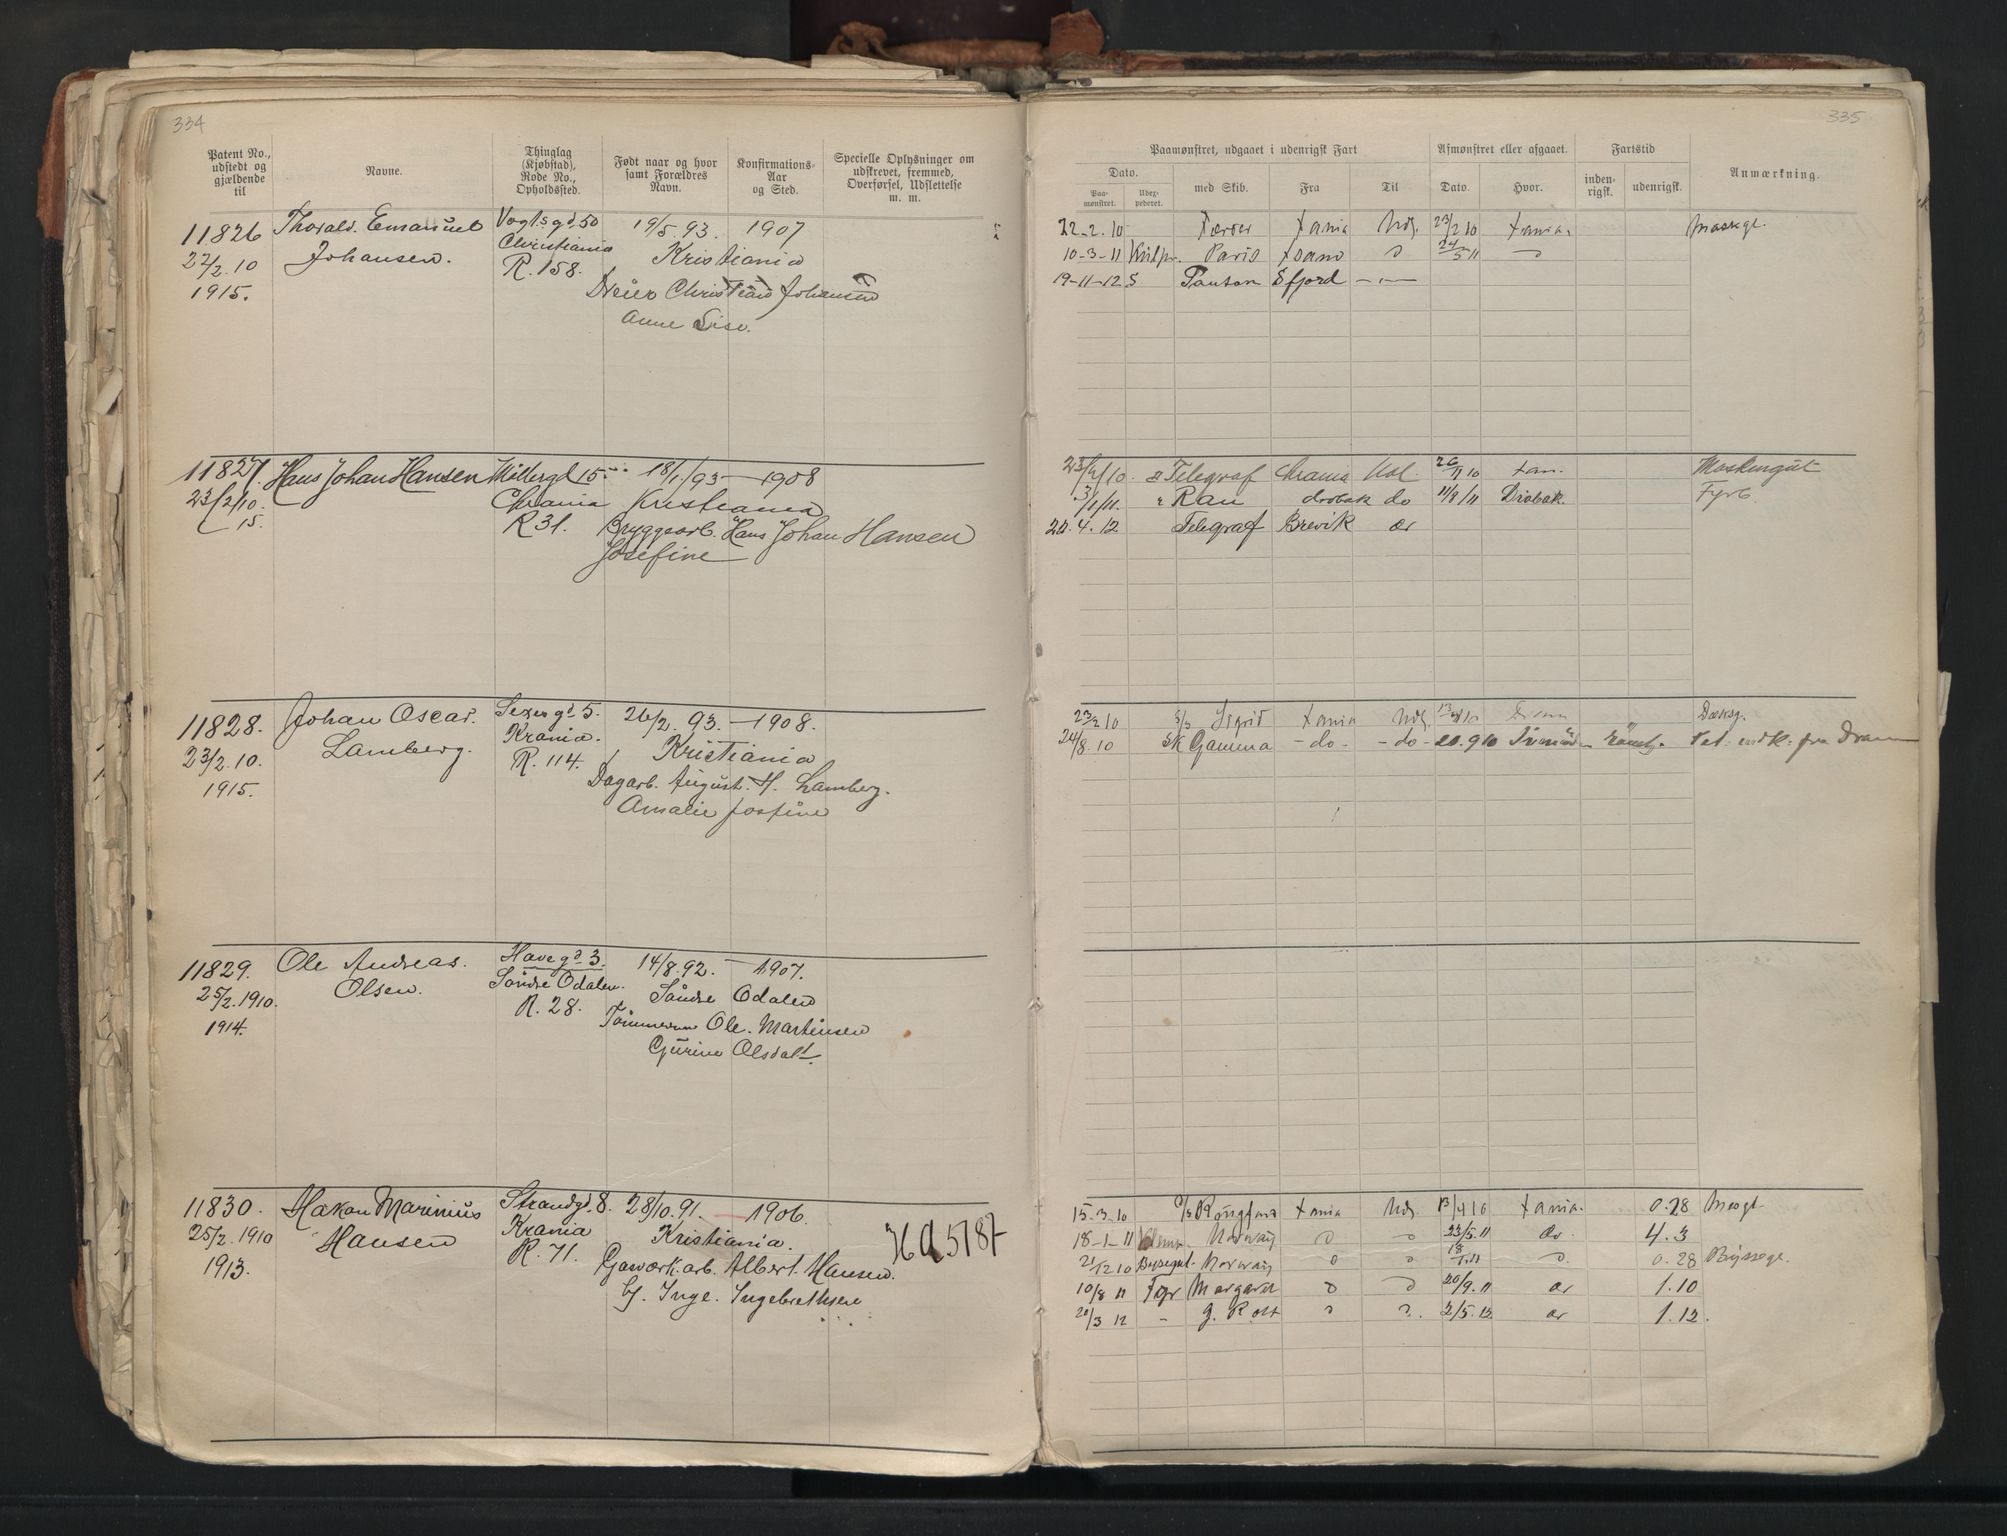 334
Patent No., udstedt og gjældende til
Navne.
Thinglag (Kjøbstad), Rode No., Opholdssted.
Født naar og hvor samt Forældres Navn.
Konfirmations-Aar og Sted.
Specielle Oplysninger om udskrevet, fremmed, Overførsel, Udslettelse m. m.
11826 Thorald. Emanuel Vogts gd 50 19/5. 93. 1907
22/2. 10 Johansen. Christiania Kristiania
1915. R. 158. Dreier Christian Johansen
Anne Lise.
11827. Hans Johan Hansen 15 18/1/93 — 1908
23/2/10. Chrania Kristiania
15. R 31. Bryggearb. Hans Johan Hansen
Josefine
11828. Johan Oscar. 5. 26/2. 93. — 1908.
23/2. 10. Lamberg. Krania. Kristiania
1915. R. 114. Dagarb. August. H. Lamberg.
Amalie Josfine
11829. Ole Andreas. Havegd 3. 14/8. 92. — 1907.
25/2. 1910. Olsen. Søndre Odalen. Søndre Odalen
1914. R. 28. Tømmerm Ole. Martinsen
Gurine Olsdatt.
11830. Hakon Marinius Strandgd 8. 28/10. 91. — 1906.
25/2. 1910 Hansen Krania Kristiania.
1913. R. 71. Gasværk arb. Albert. Hansen.
Inge. Ingebrethsen
335
Paamønstret, udgaaet i udenrigsk Fart
Afmønstret eller afgaaet.
Fartstid
Anmærkning.
Dato.
Paamønstret.
med Skib.
Fra
Til
Dato.
Hvor.
indenrigsk.
udenrigsk.
22-2. 10 Færder xania Uds. 23/2 10 xania. Maskgt.
10-3-11 Paris xsand 24/5 11
19-11-12 S Pauton Sfjord
23/2/10 Telegraf Chrania Udl. 26/11 10 xan. Maskingut
3/1/11. Rau drøbak do 11/8/11 Drøbak. Fyrb.
22. 4. 12 Telegraf Brevik
23/2 10 S/S Sigrid xania Uds. Dæksg.
24/8. 10 SK Gamma - do - - do - 20. 9 10 fra Dram
15-3-10 xania Uds. 13/4 10 xania. 0.28 Mesgt
18-1-11 Norway 23/5. 11 do. 4. 3
21/12 10 Byssegut. Norway 0.28 Byssegt.
10/8 11 Fyr Margaret 20/9. 11 1.10
20/3 12 2/5. 12 1.12.